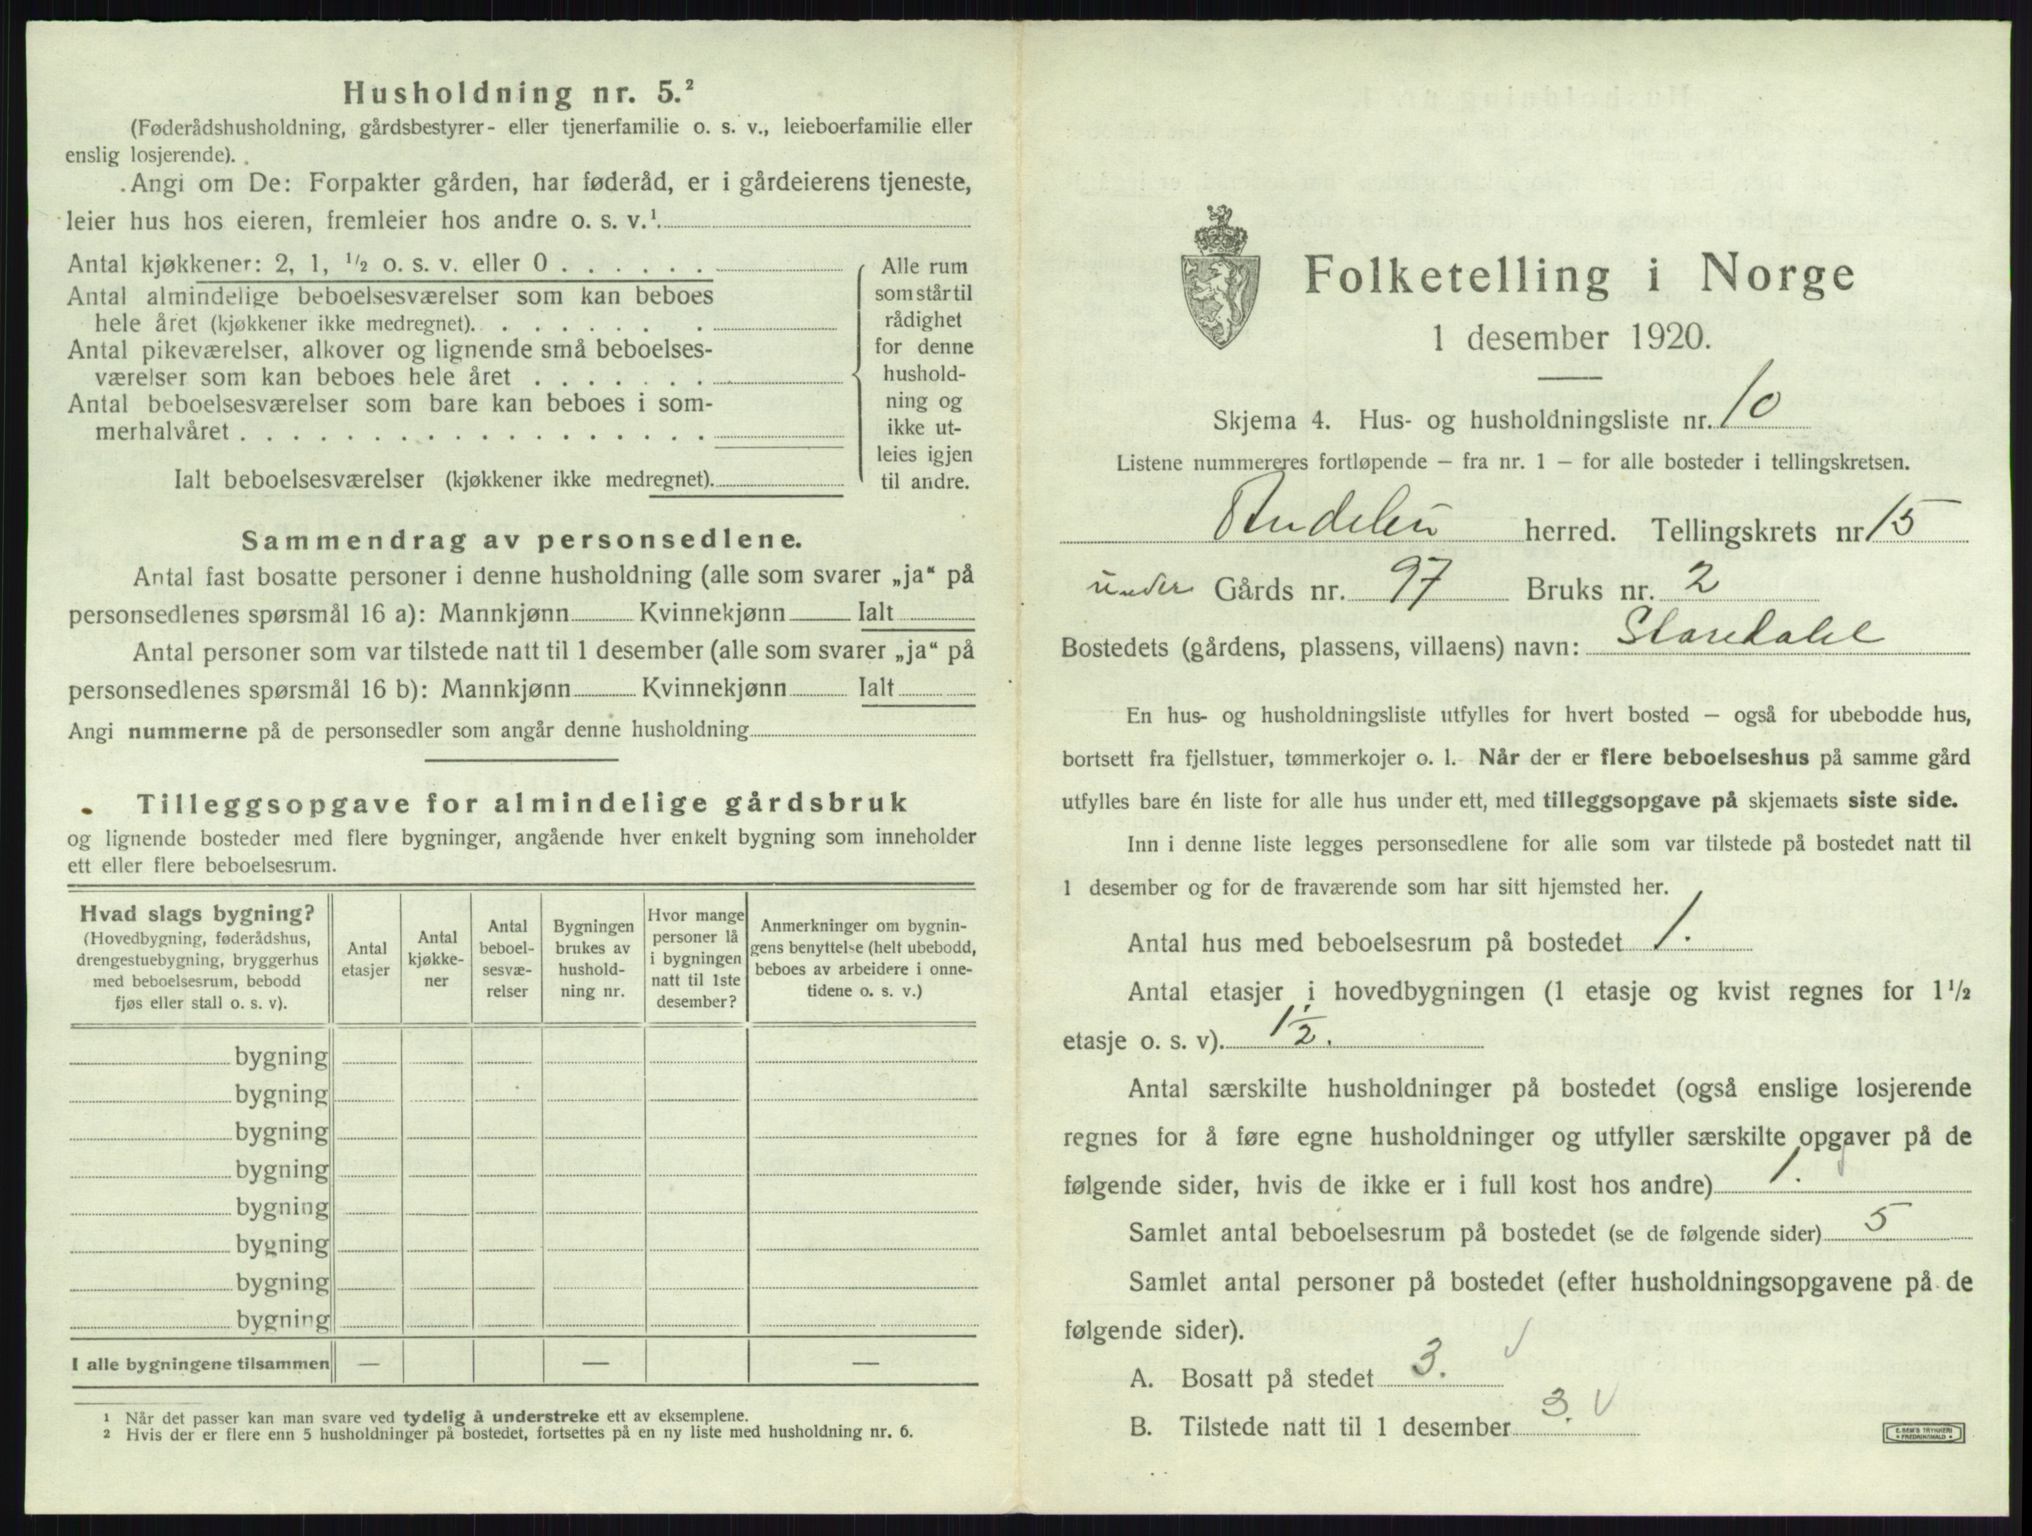 Husholdning nr. 5.²
(Føderådshusholdning, gårdsbestyrer- eller tjenerfamilie o. s. v., leieboerfamilie eller
enslig losjerende).
Angi om De: Forpakter gården, har føderåd, er i gårdeierens tjeneste,
leier hus hos eieren, fremleier hos andre o. s. v.¹
Antal kjøkkener: 2, 1, ½ o. s. v. eller 0
Antal almindelige beboelsesværelser som kan beboes
hele året (kjøkkener ikke medregnet).
Antal pikeværelser, alkover og lignende små beboelses-
værelser som kan beboes hele året
Antal beboelsesværelser som bare kan beboes i som-
merhalvåret
Ialt beboelsesværelser (kjøkkener ikke medregnet).
Alle rum
som står til
rådighet
for denne
hushold-
ning og
ikke ut-
leies igjen
til andre.
Sammendrag av personsedlene.
Antal fast bosatte personer i denne husholdning (alle som svarer „ja“ på
personsedlenes spørsmål 16 a): Mannkjønn Kvinnekjønn Ialt
Antal personer som var tilstede natt til 1 desember (alle som svarer „ja“ på
personsedlenes spørsmål 16 b): Mannkjønn Kvinnekjønn Ialt
Angi nummerne på de personsedler som angår denne husholdning
Tilleggsopgave for almindelige gårdsbruk
og lignende bosteder med flere bygninger, angående hver enkelt bygning som inneholder
ett eller flere beboelsesrum.
Hvad slags bygning?
(Hovedbygning, føderådshus,
drengestuebygning, bryggerhus
med beboelsesrum, bebodd
fjøs eller stall o. s. v).
Antal
etasjer
Antal
kjøkke-
ner
Antal
beboel-
sesvæ-
relser
Bygningen
brukes av
hushold-
ning nr.
Hvor mange
personer lå
i bygningen
natt til 1ste
desember?
Anmerkninger om bygnin-
gens benyttelse (helt ubebodd,
beboes av arbeidere i onne-
tidene o. s. v.)
bygning
bygning
bygning
bygning
bygning
bygning
bygning
bygning
I alle bygningene tilsammen — — —
1 Når det passer kan man svare ved tydelig å understreke ett av eksemplene.
2 Hvis der er flere enn 5 husholdninger på bostedet, fortsettes på en ny liste med husholdning nr. 6.
Folketelling i Norge
1 desember 1920.
Skjema 4. Hus- og husholdningsliste nr. 10
Listene nummereres fortløpende — fra nr. 1 — for alle bosteder i tellingskretsen.
Andebu herred. Tellingskrets nr 15
under Gårds nr. 97 Bruks nr. 2
Bostedets (gårdens, plassens, villaens) navn:
En hus- og husholdningsliste utfylles for hvert bosted — også for ubebodde hus,
bortsett fra fjellstuer, tømmerkojer o. l. Når der er flere beboelseshus på samme gård
utfylles bare én liste for alle hus under ett, med tilleggsopgave på skjemaets siste side.
Inn i denne liste legges personsedlene for alle som var tilstede på bostedet natt til
1 desember og for de fraværende som har sitt hjemsted her.
Antal hus med beboelsesrum på bostedet 1.
Antal etasjer i hovedbygningen (1 etasje og kvist regnes for 1½
etasje o. s. v). 1½.
Antal særskilte husholdninger på bostedet (også enslige losjerende
regnes for å føre egne husholdninger og utfyller særskilte opgaver på de
følgende sider, hvis de ikke er i full kost hos andre) 1.
Samlet antal beboelsesrum på bostedet (se de følgende sider) 5
Samlet antal personer på bostedet (efter husholdningsopgavene på de
følgende sider).
A. Bosatt på stedet 3. √
B. Tilstede natt til 1 desember 3. √